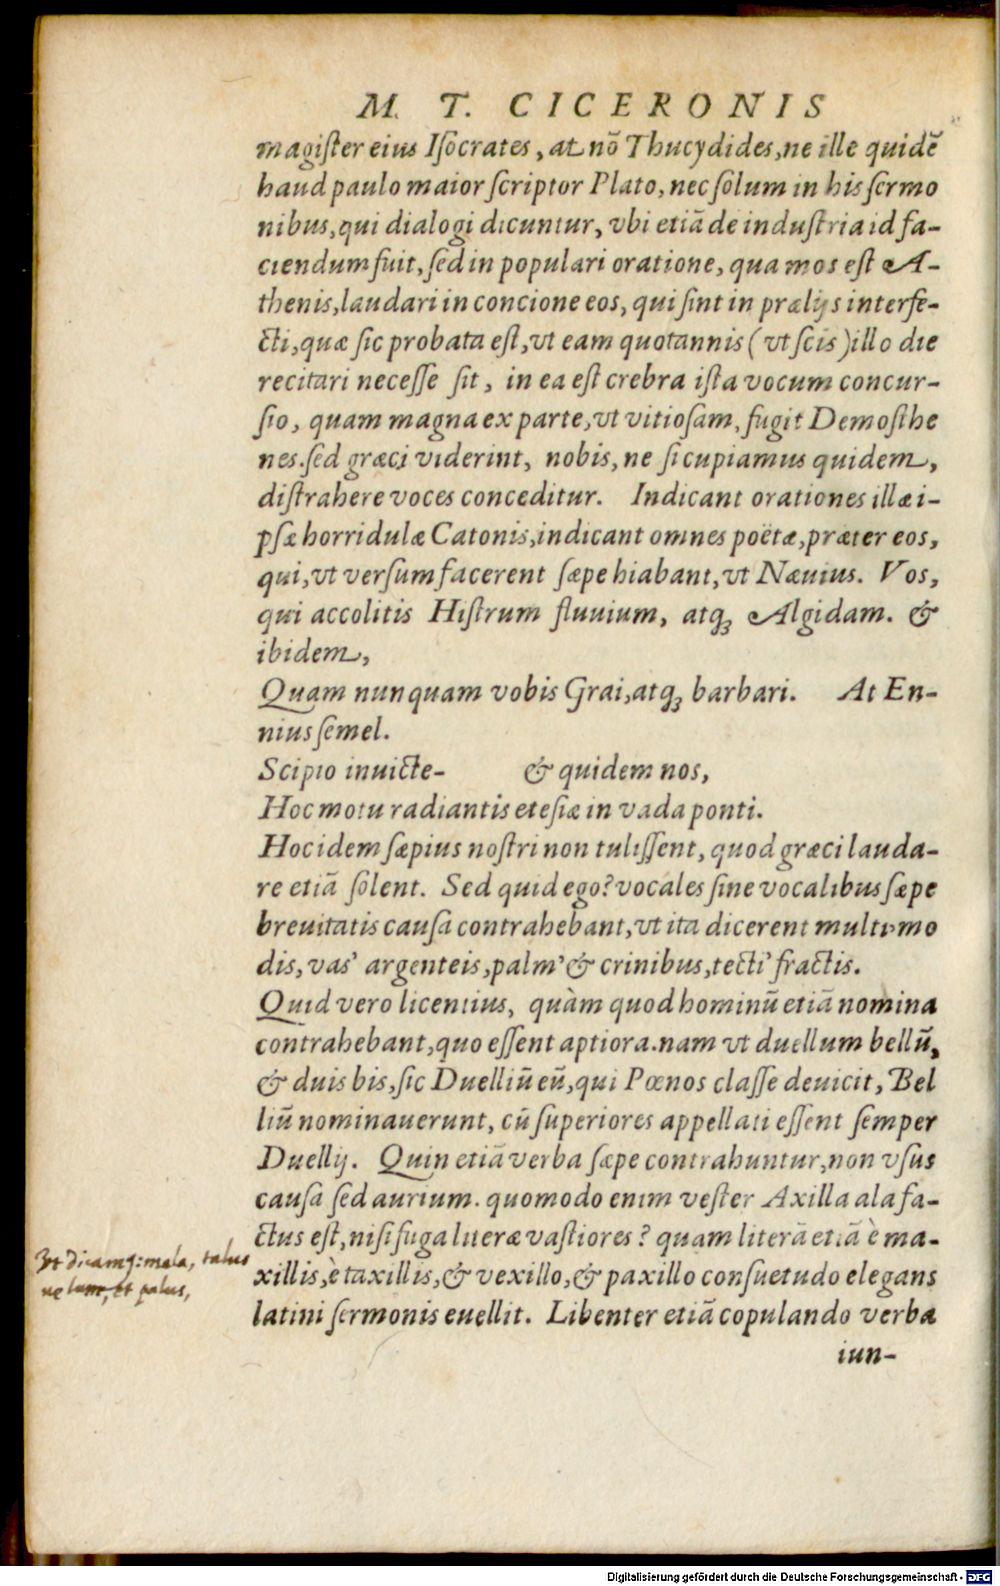 M. T. CICERONIS
magiſter eius Iſocrates, at nō Thucydides, ne ille quidē
haud paulo maior ſcriptor Plato, nec ſolum in his ſermo
nibus, qui dialogi dicuntur, vbi etiā de induſtria id fa-
ciendum fuit, ſed in populari oratione, qua mos eſt A-
thenis, laudari in concione eos, qui ſint in prælijs interfe-
cti, quæ ſic probata eſt, vt eam quotannis (vt ſcis) illo die
recitari neceſſe ſit, in ea eſt crebra iſta vocum concur-
ſio, quam magna ex parte, vt vitioſam, fugit Demoſthe
nes. ſed græci viderint, nobis, ne ſi cupiamus quidem,
diſtrahere voces conceditur. Indicant orationes illæ i-
pſæ horridulæ Catonis, indicant omnes poëtæ, præter eos,
qui, vt verſum facerent ſæpe hiabant, vt Næuius. Vos,
qui accolitis Hiſtrum fluuium, atq; Algidam. &
ibidem,
Quam nunquam vobis Grai, atq; barbari. At En-
nius ſemel.
Scipio inuicte- & quidem nos,
Hoc motu radiantis eteſiæ in vada ponti.
Hoc idem ſæpius noſtri non tuliſſent, quod græci lauda-
re etiā ſolent. Sed quid ego? vocales ſine vocalibus ſæpe
breuitatis cauſa contrahebant, vt ita dicerent multi' mo
dis, vas' argenteis, palm' & crinibus, tecti' fractis.
Quid vero licentius, quàm quod hominū etiā nomina
contrahebant, quo eſſent aptiora. nam vt duellum bellū,
& duis bis, ſic Duelliū eū, qui Pœnos claſſe deuicit, Bel
liū nominauerunt, cū ſuperiores appellati eſſent ſemper
Duellij. Quin etiā verba ſæpe contrahuntur, non vſus
cauſa ſed aurium. quomodo enim veſter Axilla ala fa-
ctus eſt, niſi fuga literæ vaſtiores? quam literā etiā è ma-
xillis, è taxillis, & vexillo, & paxillo conſuetudo elegans
latini ſermonis euellit. Libenter etiā copulando verba
iun-
Vt dicamq: mala, talus
uelum, et palus,
Digitalisierung gefördert durch die Deutsche Forschungsgemeinschaft - DFG